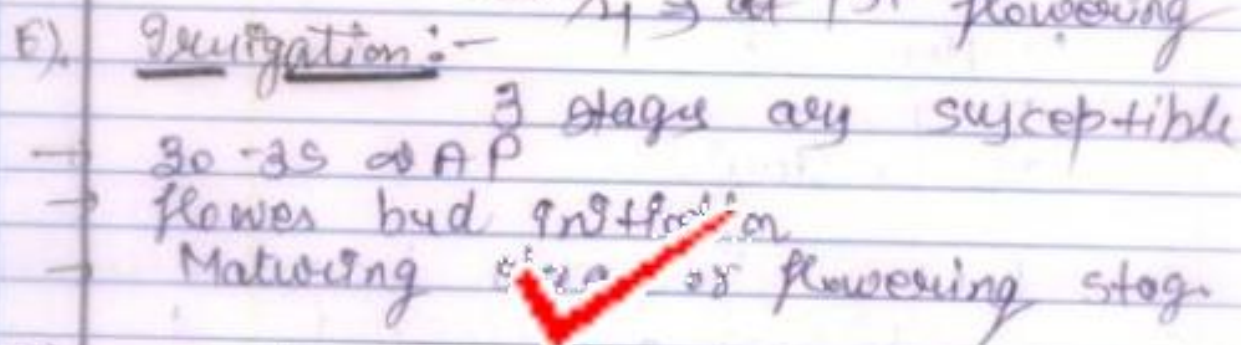 flowering
E). Irrigation :-
3 stages are susceptible
→ 30-35 DAP
→ flower bud initiation
→ Maturing or flowering stage